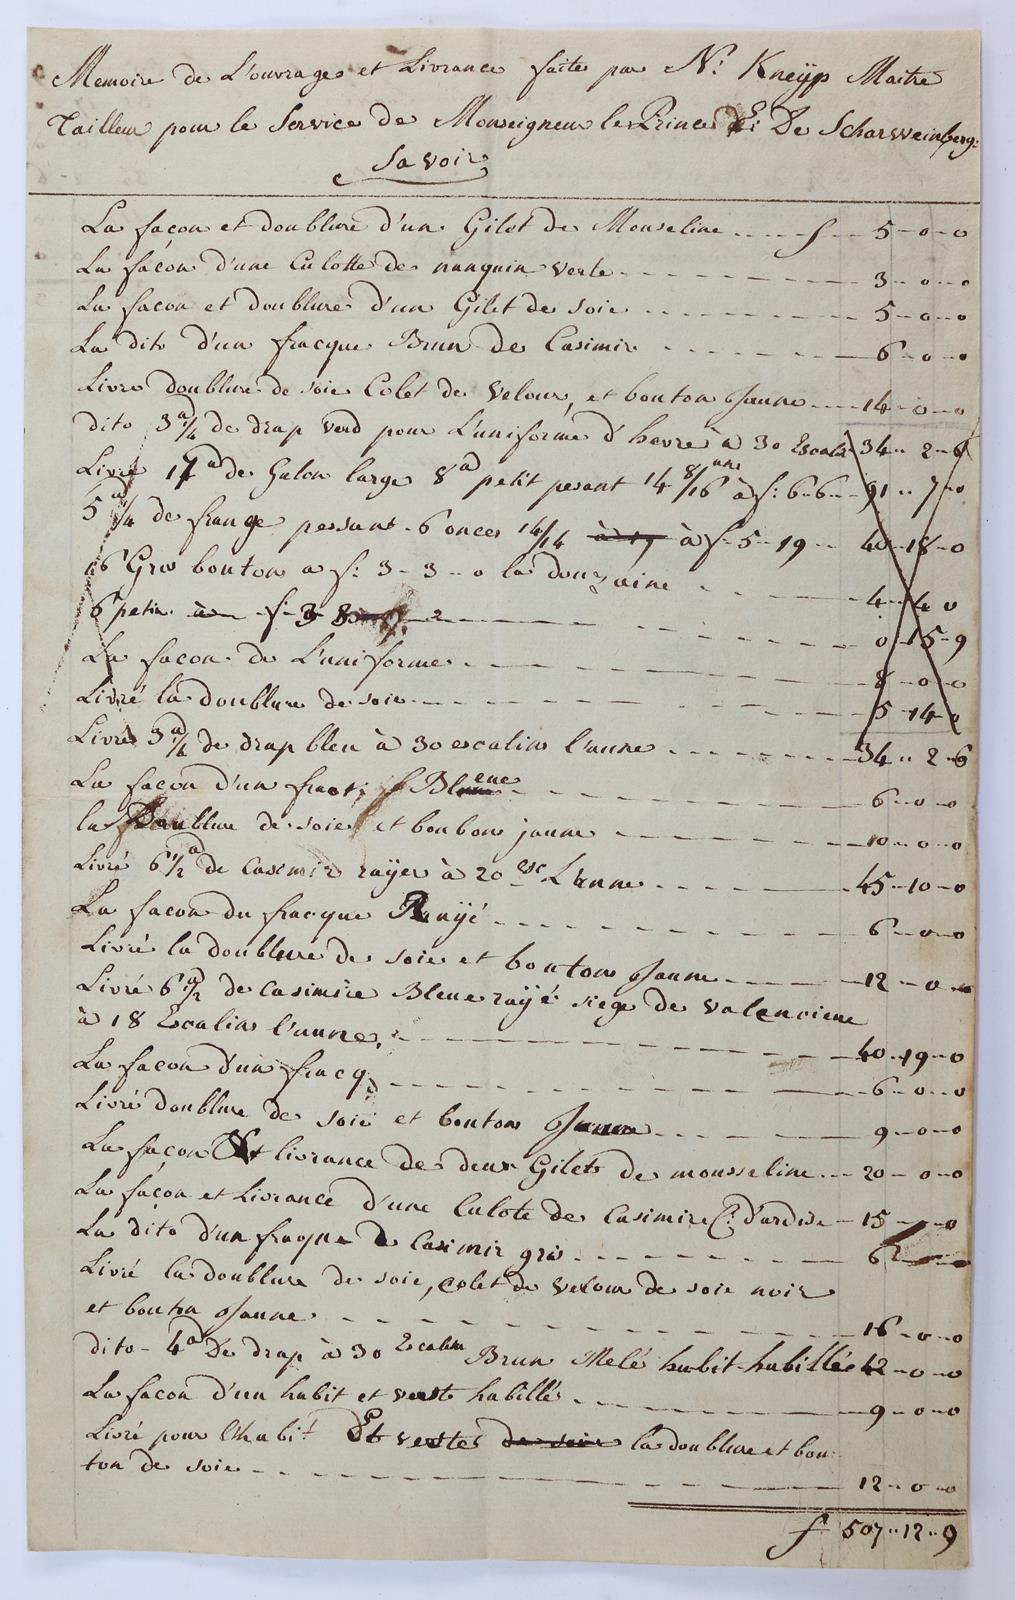 Memoire de L'ouvrages et Livrance faite par N: Kneÿp Maitre
Tailleur pour le Service de Monseigneur le Prince De Scharweinberg:
Savoir
La façon et doublure d'un Gilet de Mouseline f 5-0-0
La façon d'une Culotte de nanquin verte 3-0-0
La façon et doublure d'un Gilet de soie 5-0-0
La dito d'un fracque Brun de Casimir 6-0-0
Livré doublure de soie Colet de Velour, et bouton Jaune 14-0-0
dito 3 a/4 de drap verd pour L'uniforme d'hevre à 30 Escali 34-2-6
Livré 17 a de Galon large 8 a petit pesant 14 8/16 une à f: 6-6 91-7-0
5 a 1/4 de frange pessant 6 onces 14/14 à 17 à f-5-19 40-18-0
16 Gros bouton a f: 3-3-0 la douzaine 4-4-0
6 petin f 0-15-9
La façon de L'uniforme 8-0-0
Livré la doublure de soie 5-14-0
Livré 3 a/4 de drap bleu à 30 escalins l'aune 34-2-6
La façon d'un frac Bleue 6-0-0
la Doublure de soie et boubons jaune 10-0-0
Livré 6 1/2 a de Casimir rayer à 20 esc L'aune 45-10-0
La façon du fracque Rayé 6-0-0
Livré la doublure de soie et bouton Jaune 12-0-0
Livré 6 a 1/2 de Casimire Bleue rayé siege de Valenciene
à 18 Escalins l'aune 40-19-0
La façon d'un fracq 6-0-0
Livré doublure de soie et bouton Jaune 9-0-0
La façon Et livrance de deux Gilets de mousseline 20-0-0
La façon et Livrance d'une Culote de Casimire C: d'ardise 15-0-0
La dito d'un fraque de Casimir gris 6
Livré la doublure de soie, colet de velour de soie noir
et bouton Jaune 16-0-0
dito - 4 a De drap à 30 Escalin Brun Melé habit habillée 42-0-0
La façon d'un habit et veste habillés 9-0-0
Livré pour l'habit Et vestes de soie la doublure et bou
ton de soie 12-0-0
f 507-12-9